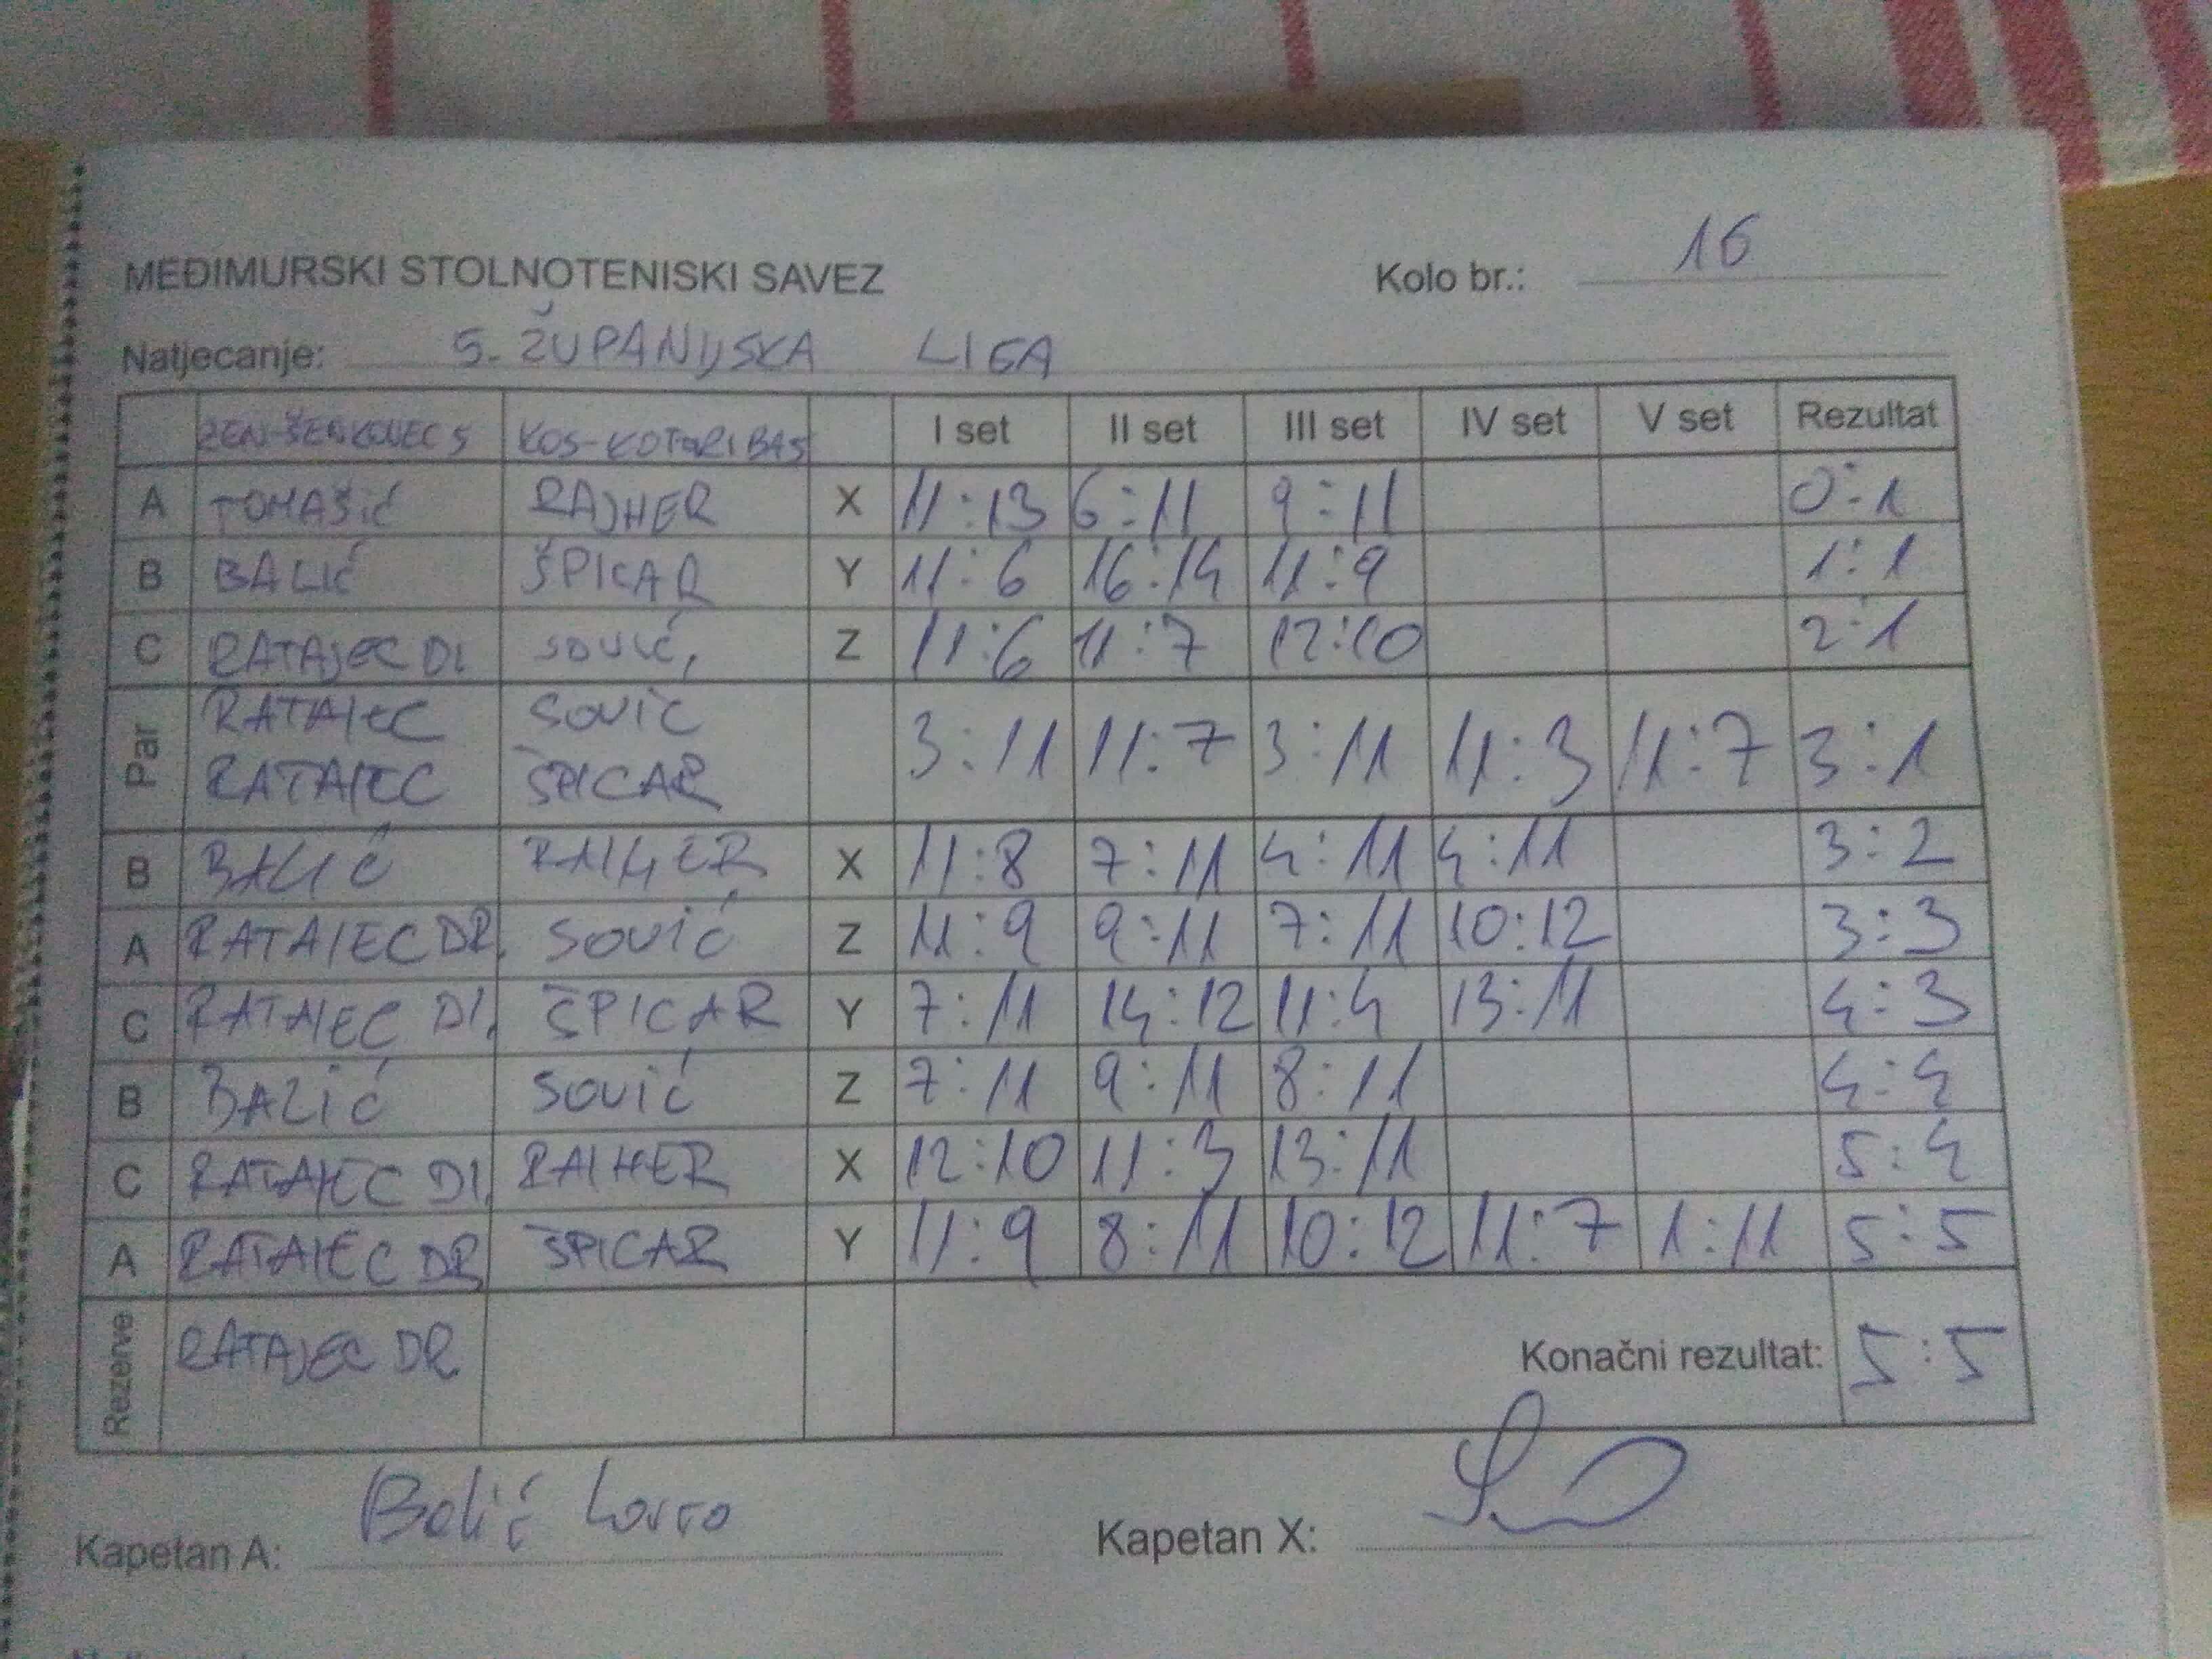 MEĐIMURSKI STOLNOTENISKI SAVEZ Kolo br.: 16
Natjecanje: 5. ŽUPANIJSKA LIGA
ZEN-ŠENKOVEC 5 KOS-KOTORIBA 5 I set II set III set IV set V set Rezultat
A TOMAŠIĆ RAJHER X 11:13 6:11 9:11 0:1
B BALIĆ ŠPICAR Y 11:6 16:14 11:9 1:1
C RATAJEC DI SOVIĆ, Z 11:6 11:7 12:10 2:1
Par RATAJEC SOVIĆ 3:11 11:7 3:11 11:3 11:7 3:1
RATAJEC ŠPICAR
B BALIĆ RAJHER X 11:8 7:11 4:11 4:11 3:2
A RATAJEC DR. SOVIĆ Z 11:9 9:11 7:11 10:12 3:3
C RATAJEC DI. ŠPICAR Y 7:11 14:12 11:4 13:11 4:3
B BALIĆ SOVIĆ Z 7:11 9:11 8:11 4:4
C RATAJEC DI. RAJHER X 12:10 11:3 13:11 5:4
A RATAJEC DR ŠPICAR Y 11:9 8:11 10:12 11:7 1:11 5:5
Rezerve RATAJEC DR Konačni rezultat: 5:5
Kapetan A: Balić Lovro Kapetan X: